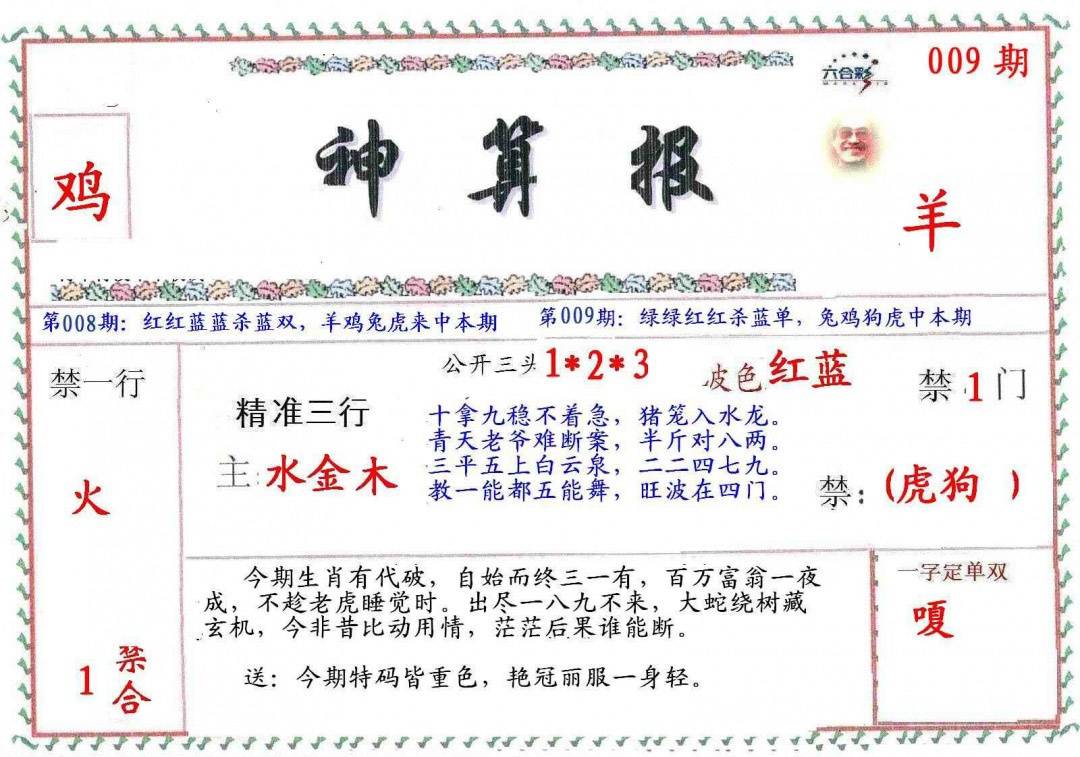 009 期
六合彩
神算报
鸡
羊
第008期：红红蓝蓝杀蓝双，羊鸡兔虎来中本期
第009期：绿绿红红杀蓝单，兔鸡狗虎中本期
禁一行
火
1 禁合
公开三头 1*2*3
波色 红蓝
禁 1 门
精准三行
主：水金木
十拿九稳不着急，猪笼入水龙。
青天老爷难断案，半斤对八两。
三平五上白云泉，二二四七九。
教一能都五能舞，旺波在四门。
禁：(虎狗 )
今期生肖有代破，自始而终三一有，百万富翁一夜
成，不趁老虎睡觉时。出尽一八九不来，大蛇绕树藏
玄机，今非昔比动用情，茫茫后果谁能断。
送：今期特码皆重色，艳冠丽服一身轻。
一字定单双
嘎